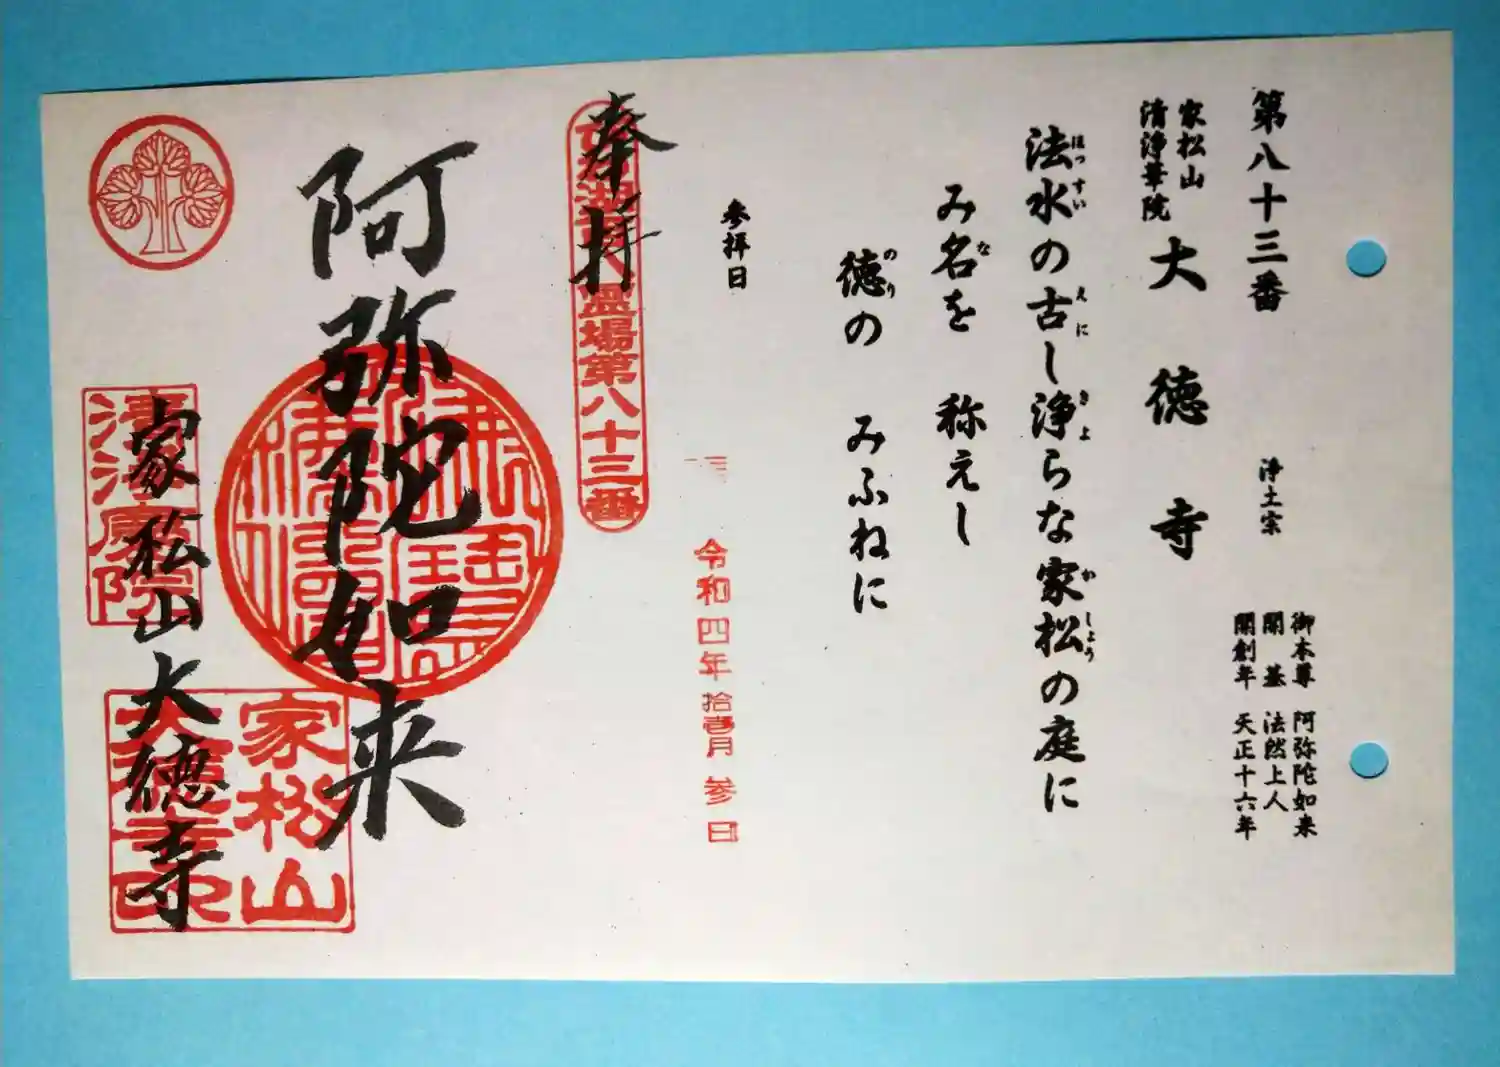 第八十三番
浄土宗
御本尊 阿弥陀如来
開基 法然上人
開創年 天正十六年
家松山
清浄華院
大徳寺
法水の古し浄らな家松の庭に
はっすい えに きよ かしょう
み名を 称えし
な
徳の みふねに
のり
参拝日
令和四年拾壱月参日
奉拝
霊場第八十三番
阿弥陀如来
家松山大徳寺
家松山